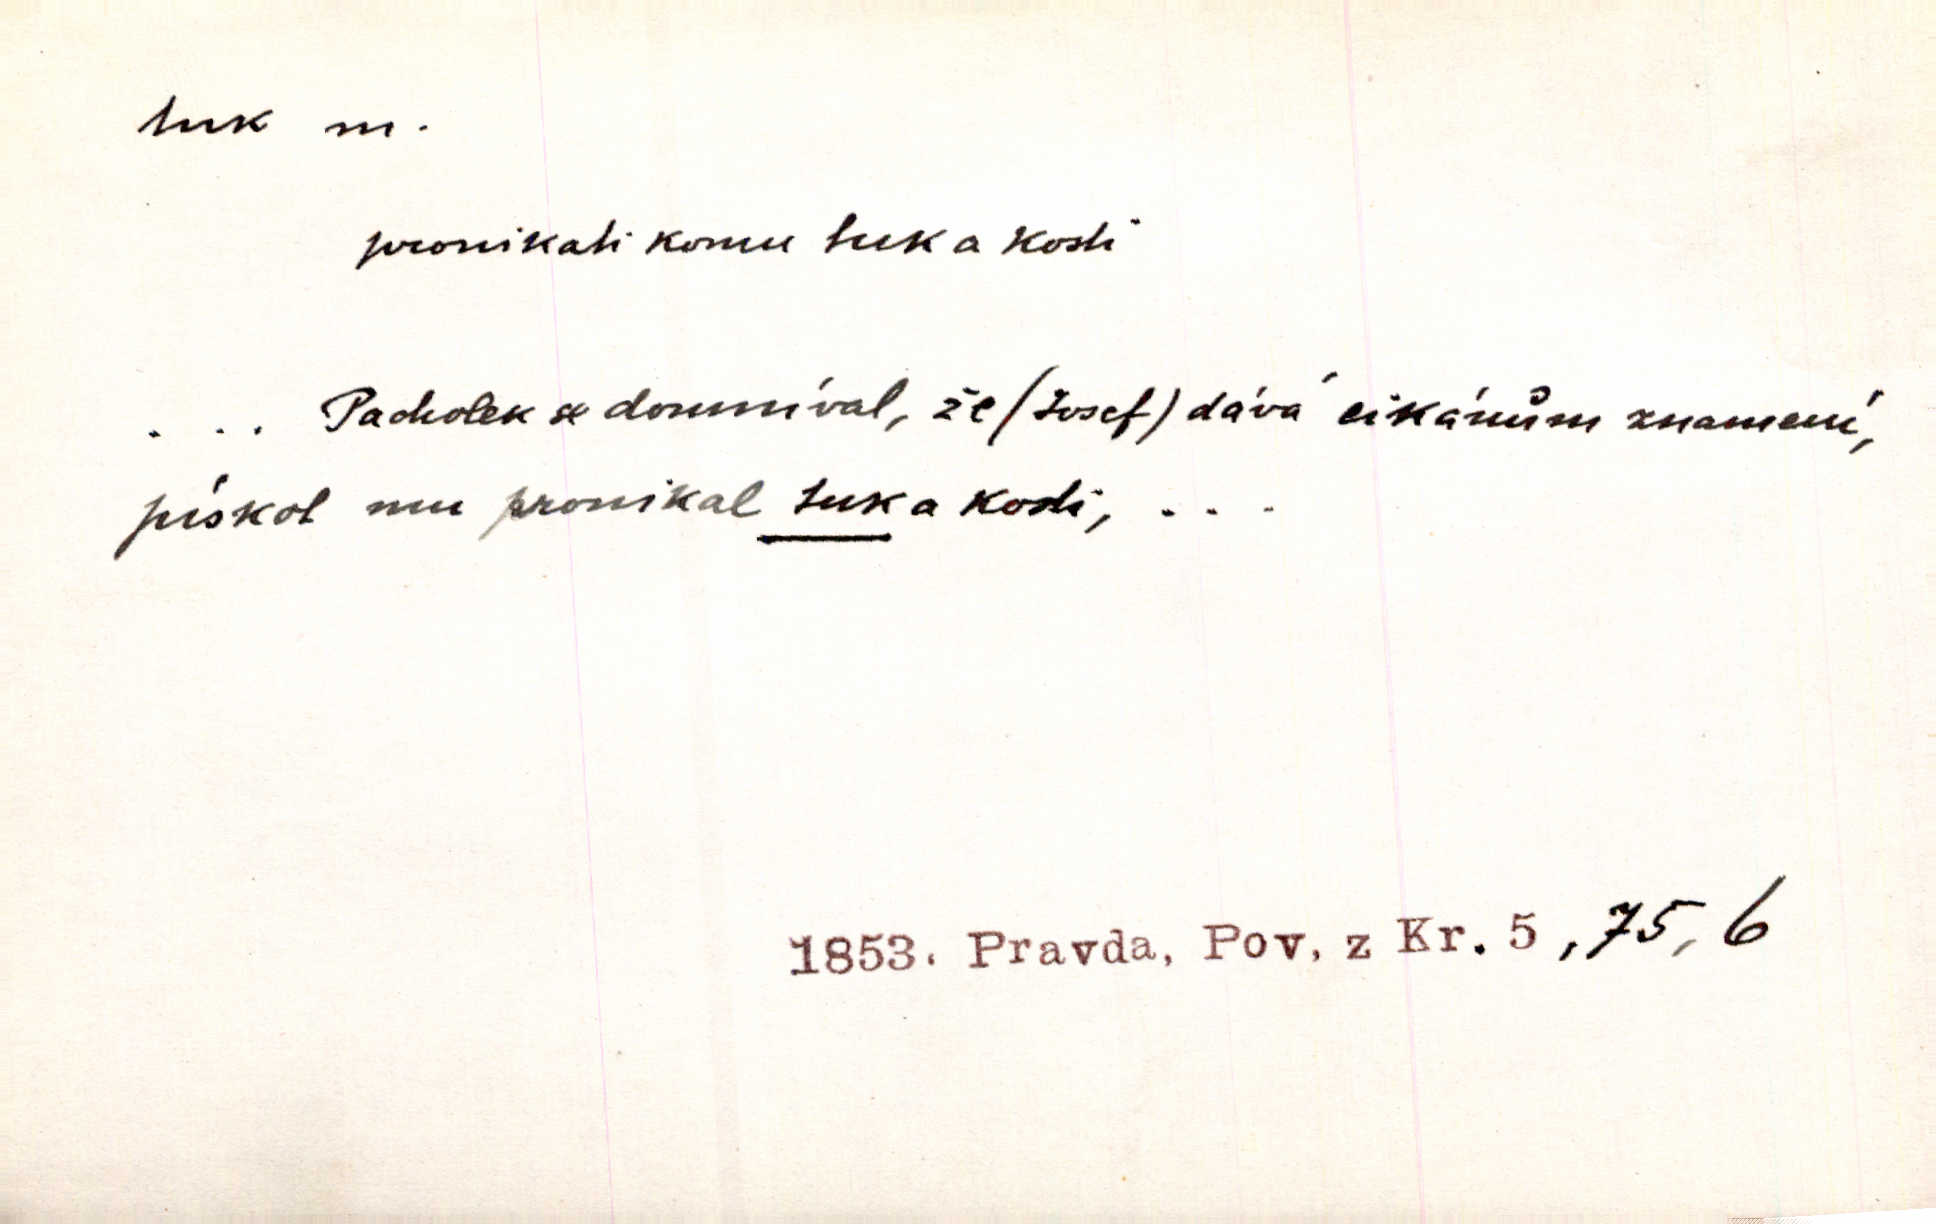 tuk m.
pronikati komu tuk a kosti
. . . Pacholek se domníval, že (Josef) dává cikánům znamení,
pískot mu pronikal tuk a kosti, . . .
1853. Pravda, Pov. z Kr. 5, 75, 6